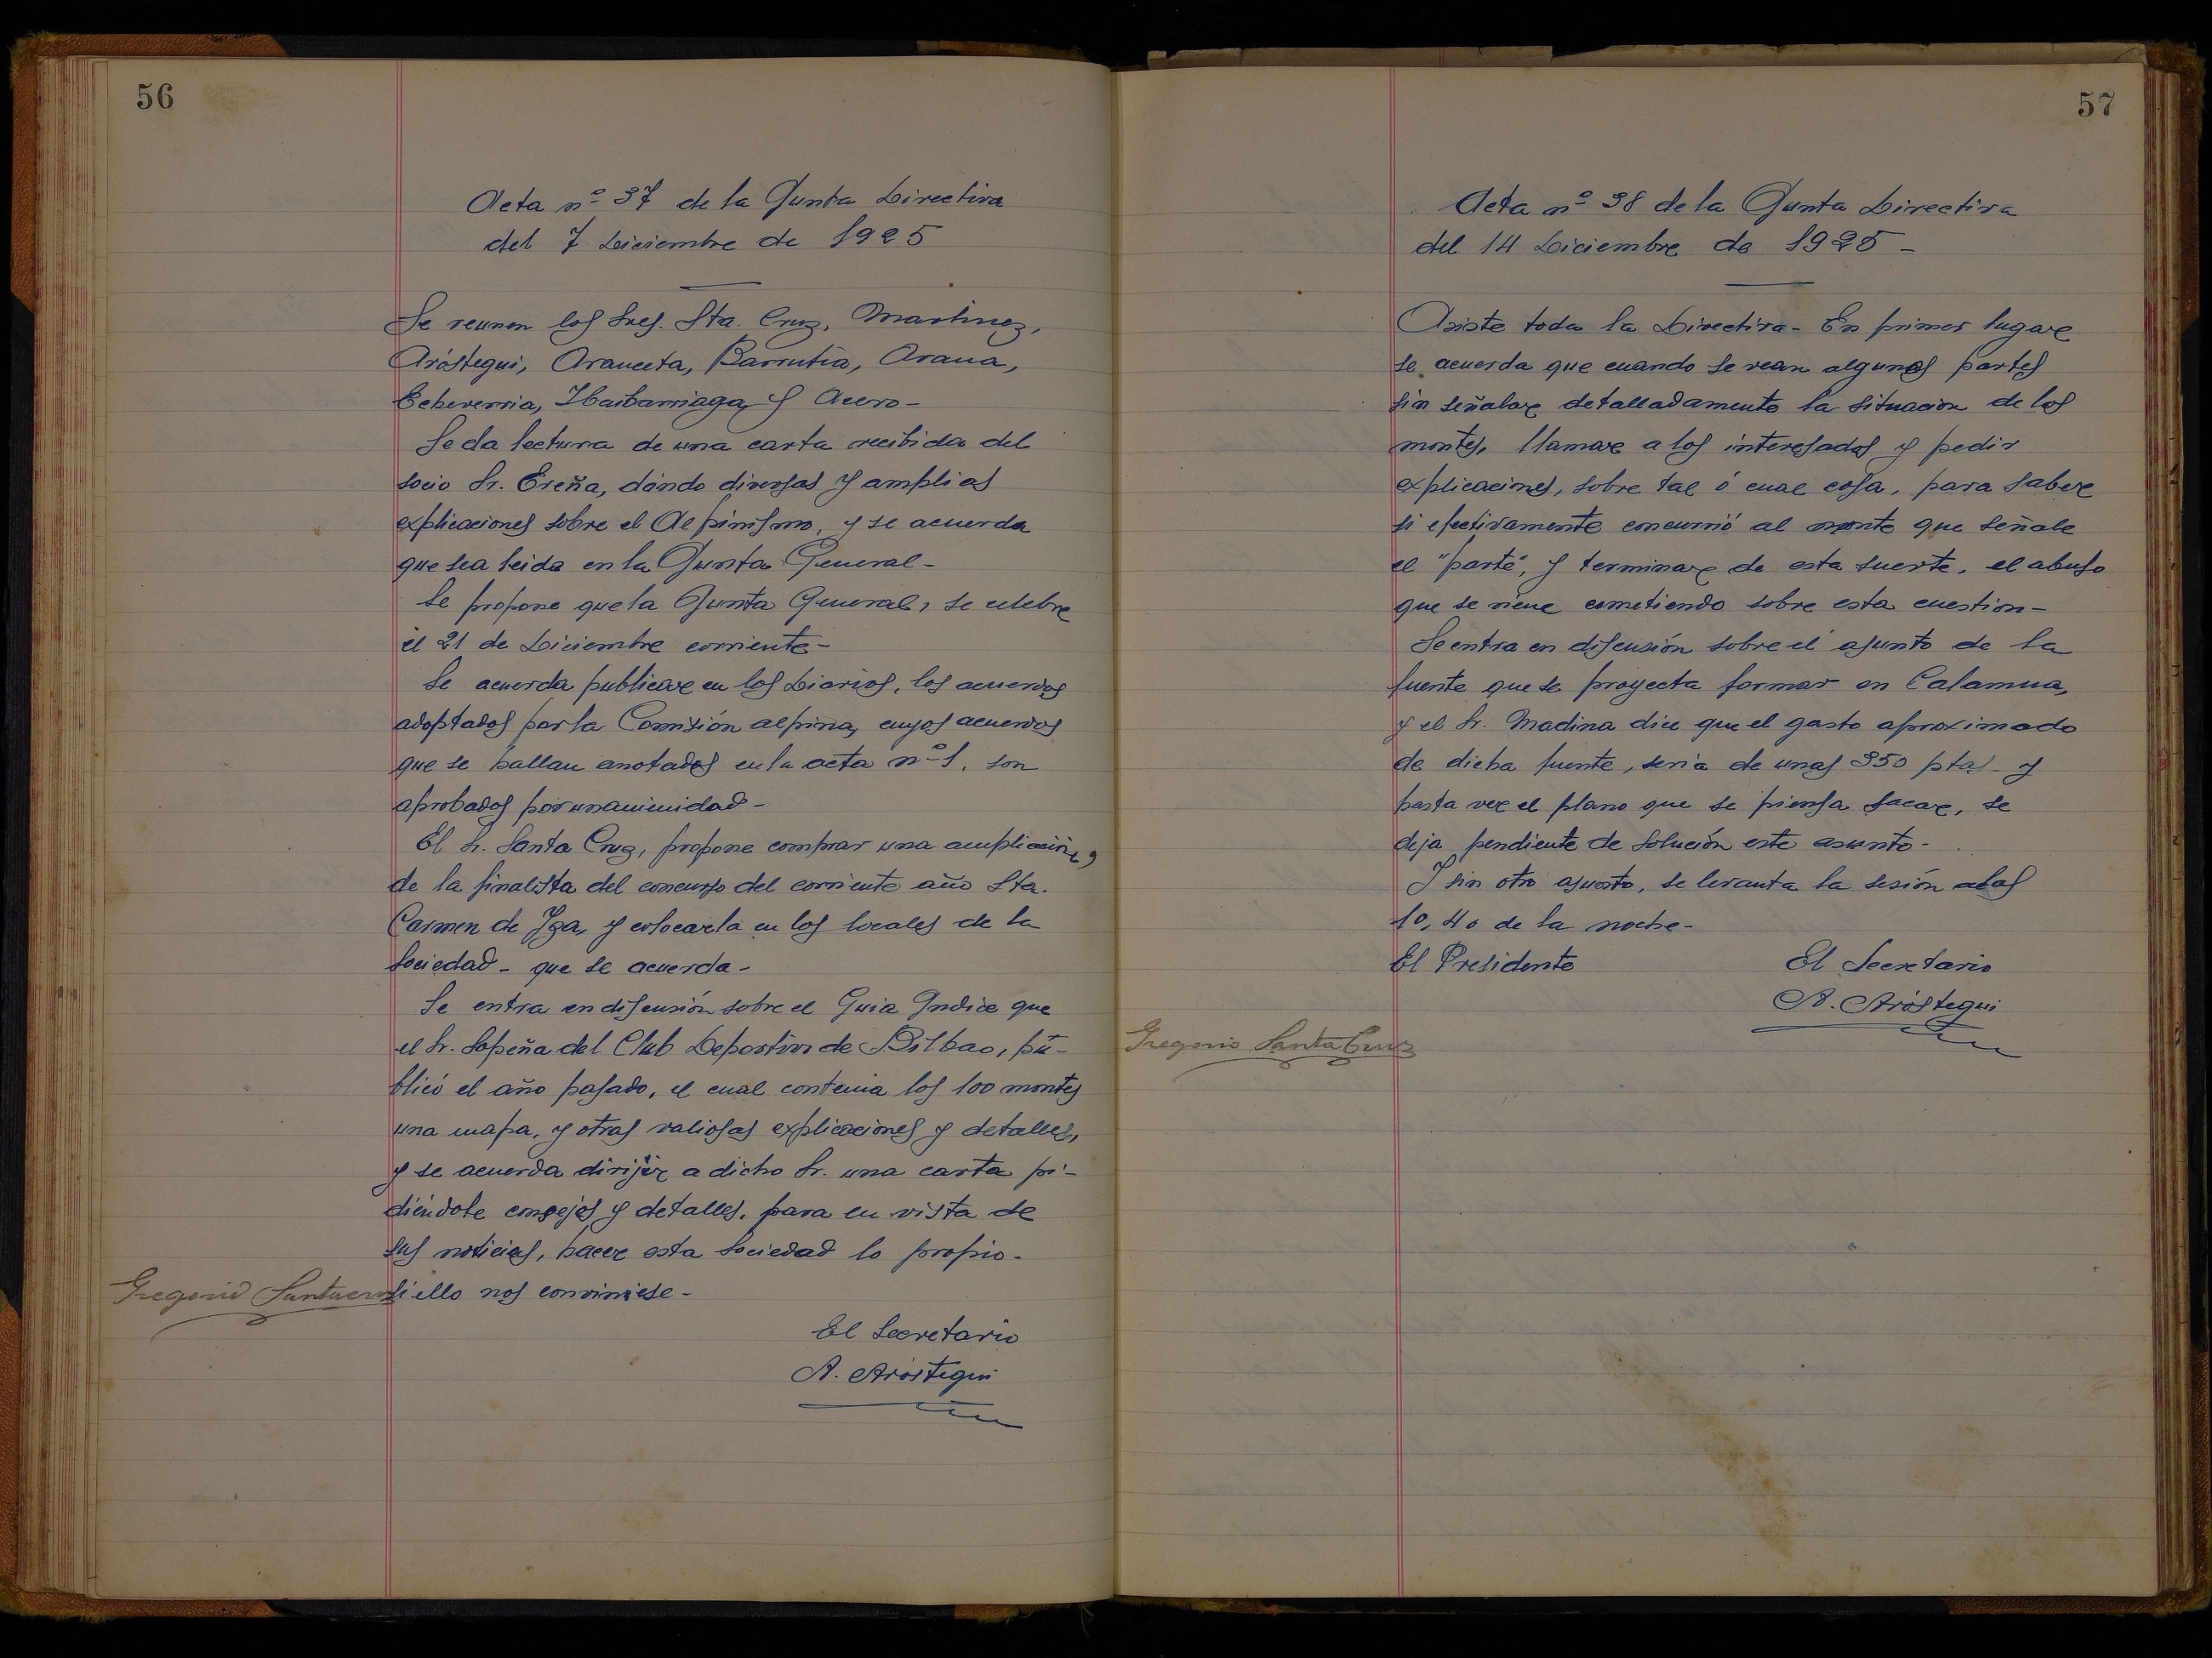 56
Acta nº 37 de la Junta Directiva
del 7 Diciembre de 1925
Se reunen los Sres. Sta. Cruz, Martinez,
Aróstegui, Aranceta, Barrutia, Arana,
Echeverria, Ibaibarriaga y Acero-
Se da lectura de una carta recibida del
socio Sr. Ereña, dándo diversas y amplias
explicaciones sobre el Alpinismo, y se acuerda
que sea leida en la Junta General-
Se propone que la Junta General, se celebre
el 21 de Diciembre corriente-
Se acuerda publicar en los Diarios, los acuerdos
adoptados por la Comisión alpina, cuyos acuerdos
que se hallan anotados en la acta nº 1, son
aprobados por unanimidad-
El Sr. Santa Cruz, propone comprar una ampliación,
de la finalista del concurso del corriente año Sta.
Carmen de Iza, y colocarla en los locales de la
Sociedad- que se acuerda-
Se entra en discusión sobre el Guia Indice que
el Sr. Sopeña del Club Deportivo de Bilbao, pu-
blicó el año pasado, el cual contenia los 100 montes
una mapa, y otras valiosas explicaciones y detalles,
y se acuerda dirijir a dicho Sr. una carta pi-
diéndole consejos y detalles, para en vista de
sus noticias, hacer esta Sociedad lo propio-
si ello nos conviniese-
Gregorio Santacruz
El Secretario
A. Aróstegui
57
Acta nº 38 de la Junta Directiva
del 14 Diciembre de 1925-
Asiste toda la Directiva- En primer lugar
se acuerda que cuando se vean algunos partes
sin señalar detalladamente la situacion de los
montes, llamar a los interesados y pedir
explicaciones, sobre tal ó cual cosa, para saber
si efectivamente concurrió al monte que señale
el "parte", y terminar de esta suerte, el abuso
que se viene cometiendo sobre esta cuestion-
Se entra en discusión sobre el asunto de la
fuente que se proyecta formar en Calamua,
y el Sr. Madina dice que el gasto aproximado
de dicha fuente, seria de unas 350 ptas- y
hasta ver el plano que se piensa sacar, se
deja pendiente de solución este asunto-
Y sin otro asunto, se levanta la sesión a las
10,40 de la noche-
El Presidente El Secretario
A. Aróstegui
Gregorio Santa Cruz